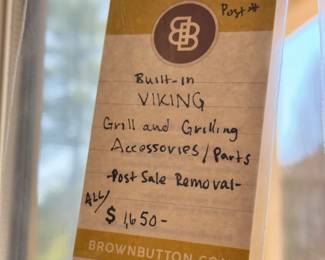 Post #
BB
Built-in
VIKING
Grill and Grilling
Accessories/Parts
-Post Sale Removal-
ALL/
$1,650-
BROWNBUTTON.COM